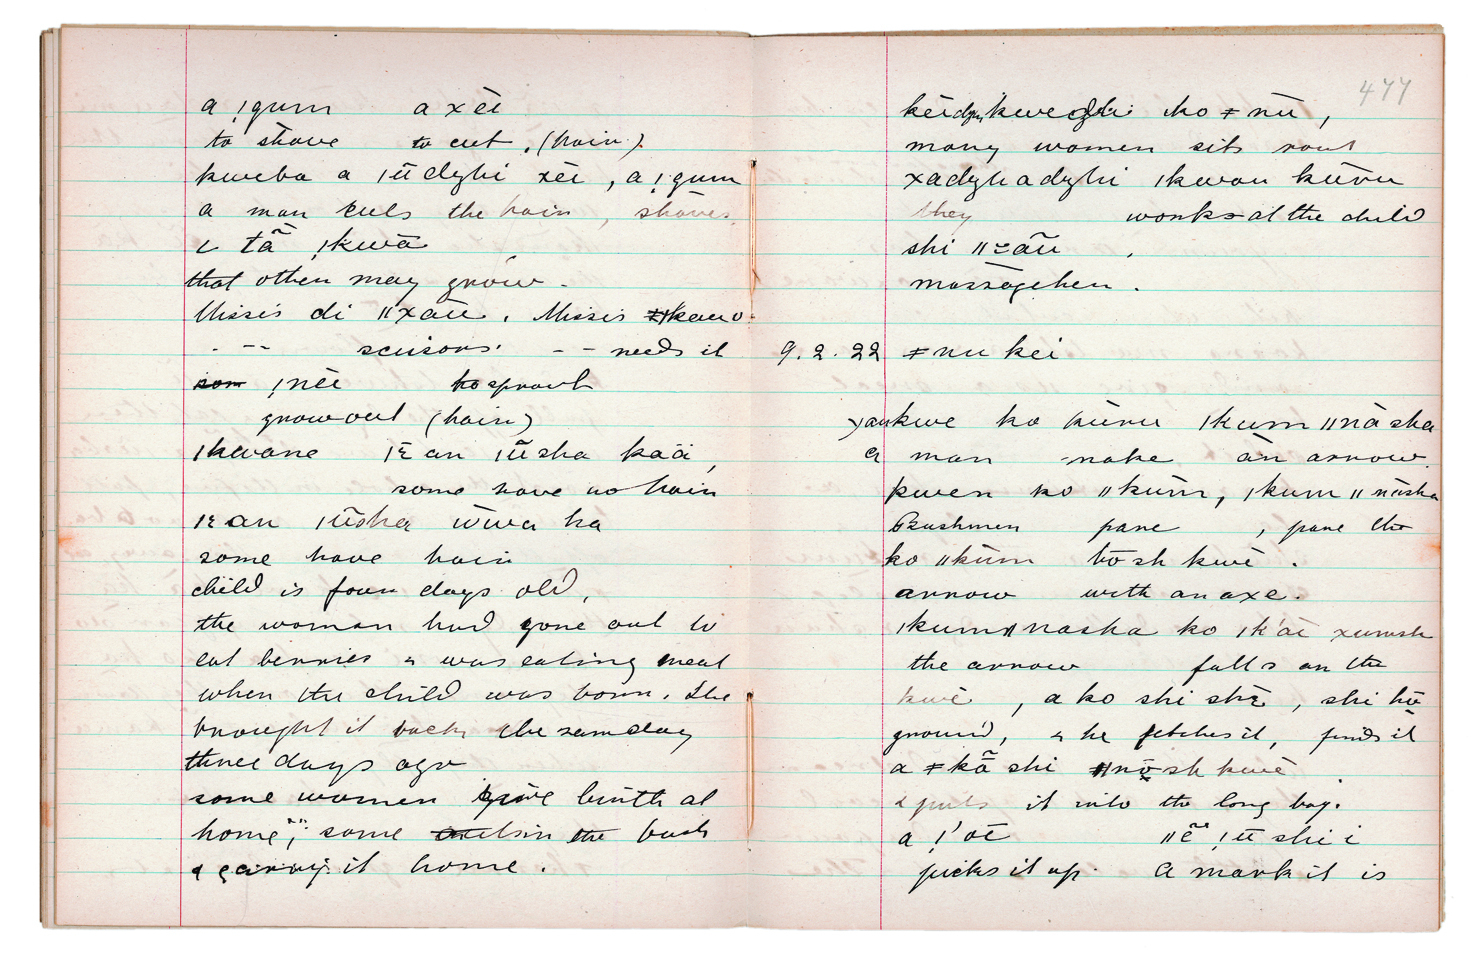 a ǃgum a xēi
to shave to cut, (hair).
kweba a ǀū dzhi xēi, a ǃgum
a man cuts the hair, shaves
i tã ǀkwā
that other may grow.
Missis di ǁxāu. Missis ǂkauo
- -- scissors. -- needs it
ǃnēi to sprout
grow out (hair)
ǀkwane ǀɛ an ǀūsha kaä,
some have no hair
ǀɛ an ǀūsha ūwa ka
some have hair
child is four days old,
the woman had gone out to
eat berries & was eating meat
when the child was born. She
brought it back the same day
three days ago
some women give birth at
home, some in the bush
& carry it home.
477
kēidzhikwedzhi ko ǂnū,
many women sits
xadzhadzhi ǀkwau kūru
they works at the child
shi ǁxāu.
massagehen.
9.2.22 ǂnu kei
xaukwe ko kūru ǀkum ǁnāsha
a man make an arrow.
kwen ko ǁkūm, ǀkum ǁnāsha
Bushmen pare, pare the
ko ǁkūm bōsh kwē.
arrow with an axe.
ǀkum ǁnasha ko ǀk'āi xumsh
the arrow falls on the
kwē, a ko shi shɛ, shi hō
ground, & he fetches it, finds it
a ǂkã shi ǁnōsh kwē
& puts it into the long bag.
a ǃ'oē ǁē ǃū shi i
picks it up. A mark it is